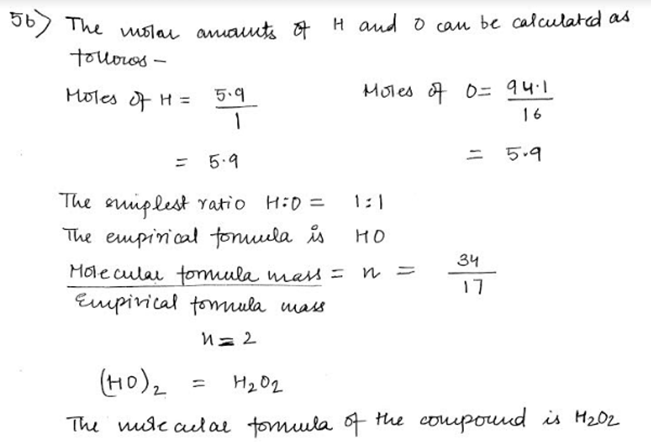 5b) The molar amounts of H and O can be calculated as
follows –
Moles of H = 5.9 / 1 Moles of O = 94.1 / 16
= 5.9 = 5.9
The simplest ratio H:O = 1:1
The empirical formula is HO
Molecular formula mass / Empirical formula mass = n = 34 / 17
n = 2
(HO)2 = H2O2
The molecular formula of the compound is H2O2